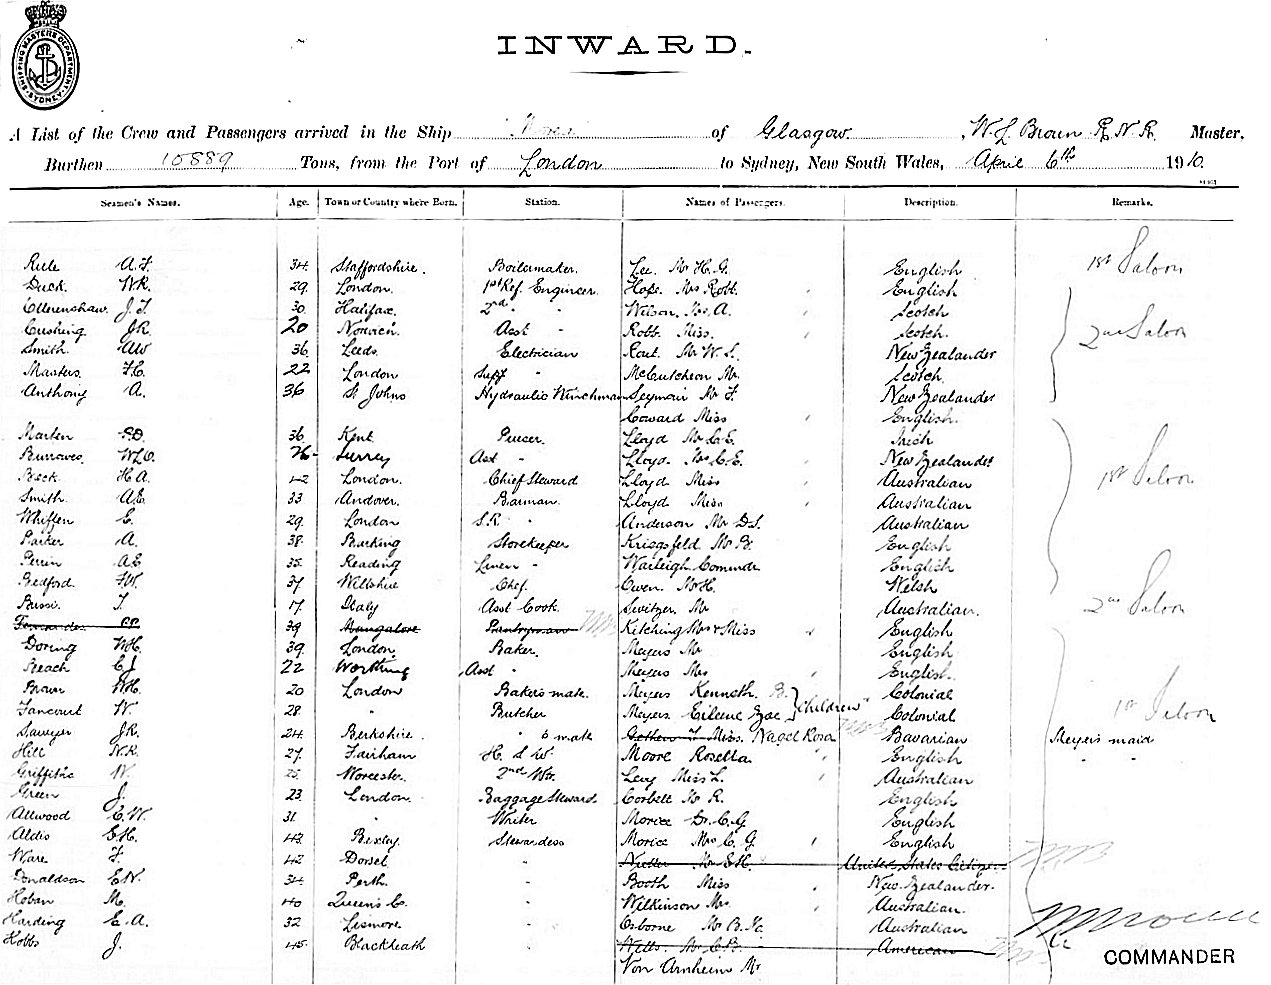 SHIPPING MASTERS DEPARTMENT
SYDNEY
INWARD.
A List of the Crew and Passengers arrived in the Ship of Glasgow, W. L. Brown R.N.R. Master,
Burthen 10889 Tons, from the Port of London to Sydney, New South Wales, April 6th 1910.
Seamen's Names. Age. Town or Country where Born. Station. Names of Passengers. Description. Remarks.
Rule A.F. 34 Staffordshire. Boilermaker. Lee. Mr H. G. English 1st Saloon
Duck. W.R. 29. London. 1st Ref. Engineer. Hope. Mrs Robt. English
Ollerenshaw. J.T. 30. Halifax. 2nd " " Wilson. A. Scotch
Cushing J.R. 20 Norwich Asst " Robb. Miss. Scotch. 2nd Saloon
Smith. AW 36. Leeds. Electrician Mr W. S. New Zealander
Masters. F.C. 22 London " McCutcheon Mr. Scotch
Anthony A. 36 St Johns Hydraulic Winchman Seymour Mr F. New Zealander
Coward Miss English.
Marten 36 Kent Purser. Lloyd Mr C.E. Irish
Burrowes. W.L.O. 26 Surrey Asst " Lloyd. Mrs C.E. New Zealander
Beck. H.A. 42 London. Chief Steward Lloyd Miss Australian 1st Saloon
Smith. A.E. 33 Andover. Barman. Lloyd Miss Australian
Whiffen E. 29. London S.R. " Anderson Mr D.S. Australian
Parker A. 38. Barking Storekeeper Kriegsfeld Mr B. English
Perrin A.E. 35. Reading Linen " Warleigh Commdr English
Bedford. F.W. 37 Wiltshire Chef. Owen. Mr H. Welsh
T. 17 Italy Asst Cook. Switzer Mr Australian. 2nd Saloon
Fernandes 39 Mangalore Pantryman Kitching Mrs & Miss English
Doring W.H. 39. London. Baker. Meyers Mr English
Beach C.J. 22 Worthing Asst " Meyers Mrs English.
Brown W.H. 20 London Baker's mate. Meyers Kenneth B. } Children Colonial
Fancourt W. 28. " Butcher Meyers. Eileen Zae } Colonial 1st Saloon
Sawyer J.R. 24. Berkshire. " s mate Miss. Nagel Rosa Bavarian Meyers maid
Hill N.R. 27. Fareham H. S. W. Moore Rosetta English " "
Griffiths W. 25. Worcester. 2nd Wtr. Levy Miss L. Australian
Green J. 23. London. Baggage Steward Corbett Mr R. English
Allwood E.W. 31 " Writer Morice Dr. C. G English
Aldis E.H. 43. Bexley. Stewardess Morice Mrs C. G English
Ware F. 42 Dorset " Mr E.H. United States Citizen
Donaldson E.N. 34 Perth. " Booth Miss New Zealander.
Hoban M. 40 Queen's Co. " Wilkinson Mrs Australian.
Harding E. A. 32 Lismore. " Osborne Mr B. Australian
Hobbs J. 45. Blackheath " Wells. Mr C.B. American
Von Arnheim Mr
COMMANDER